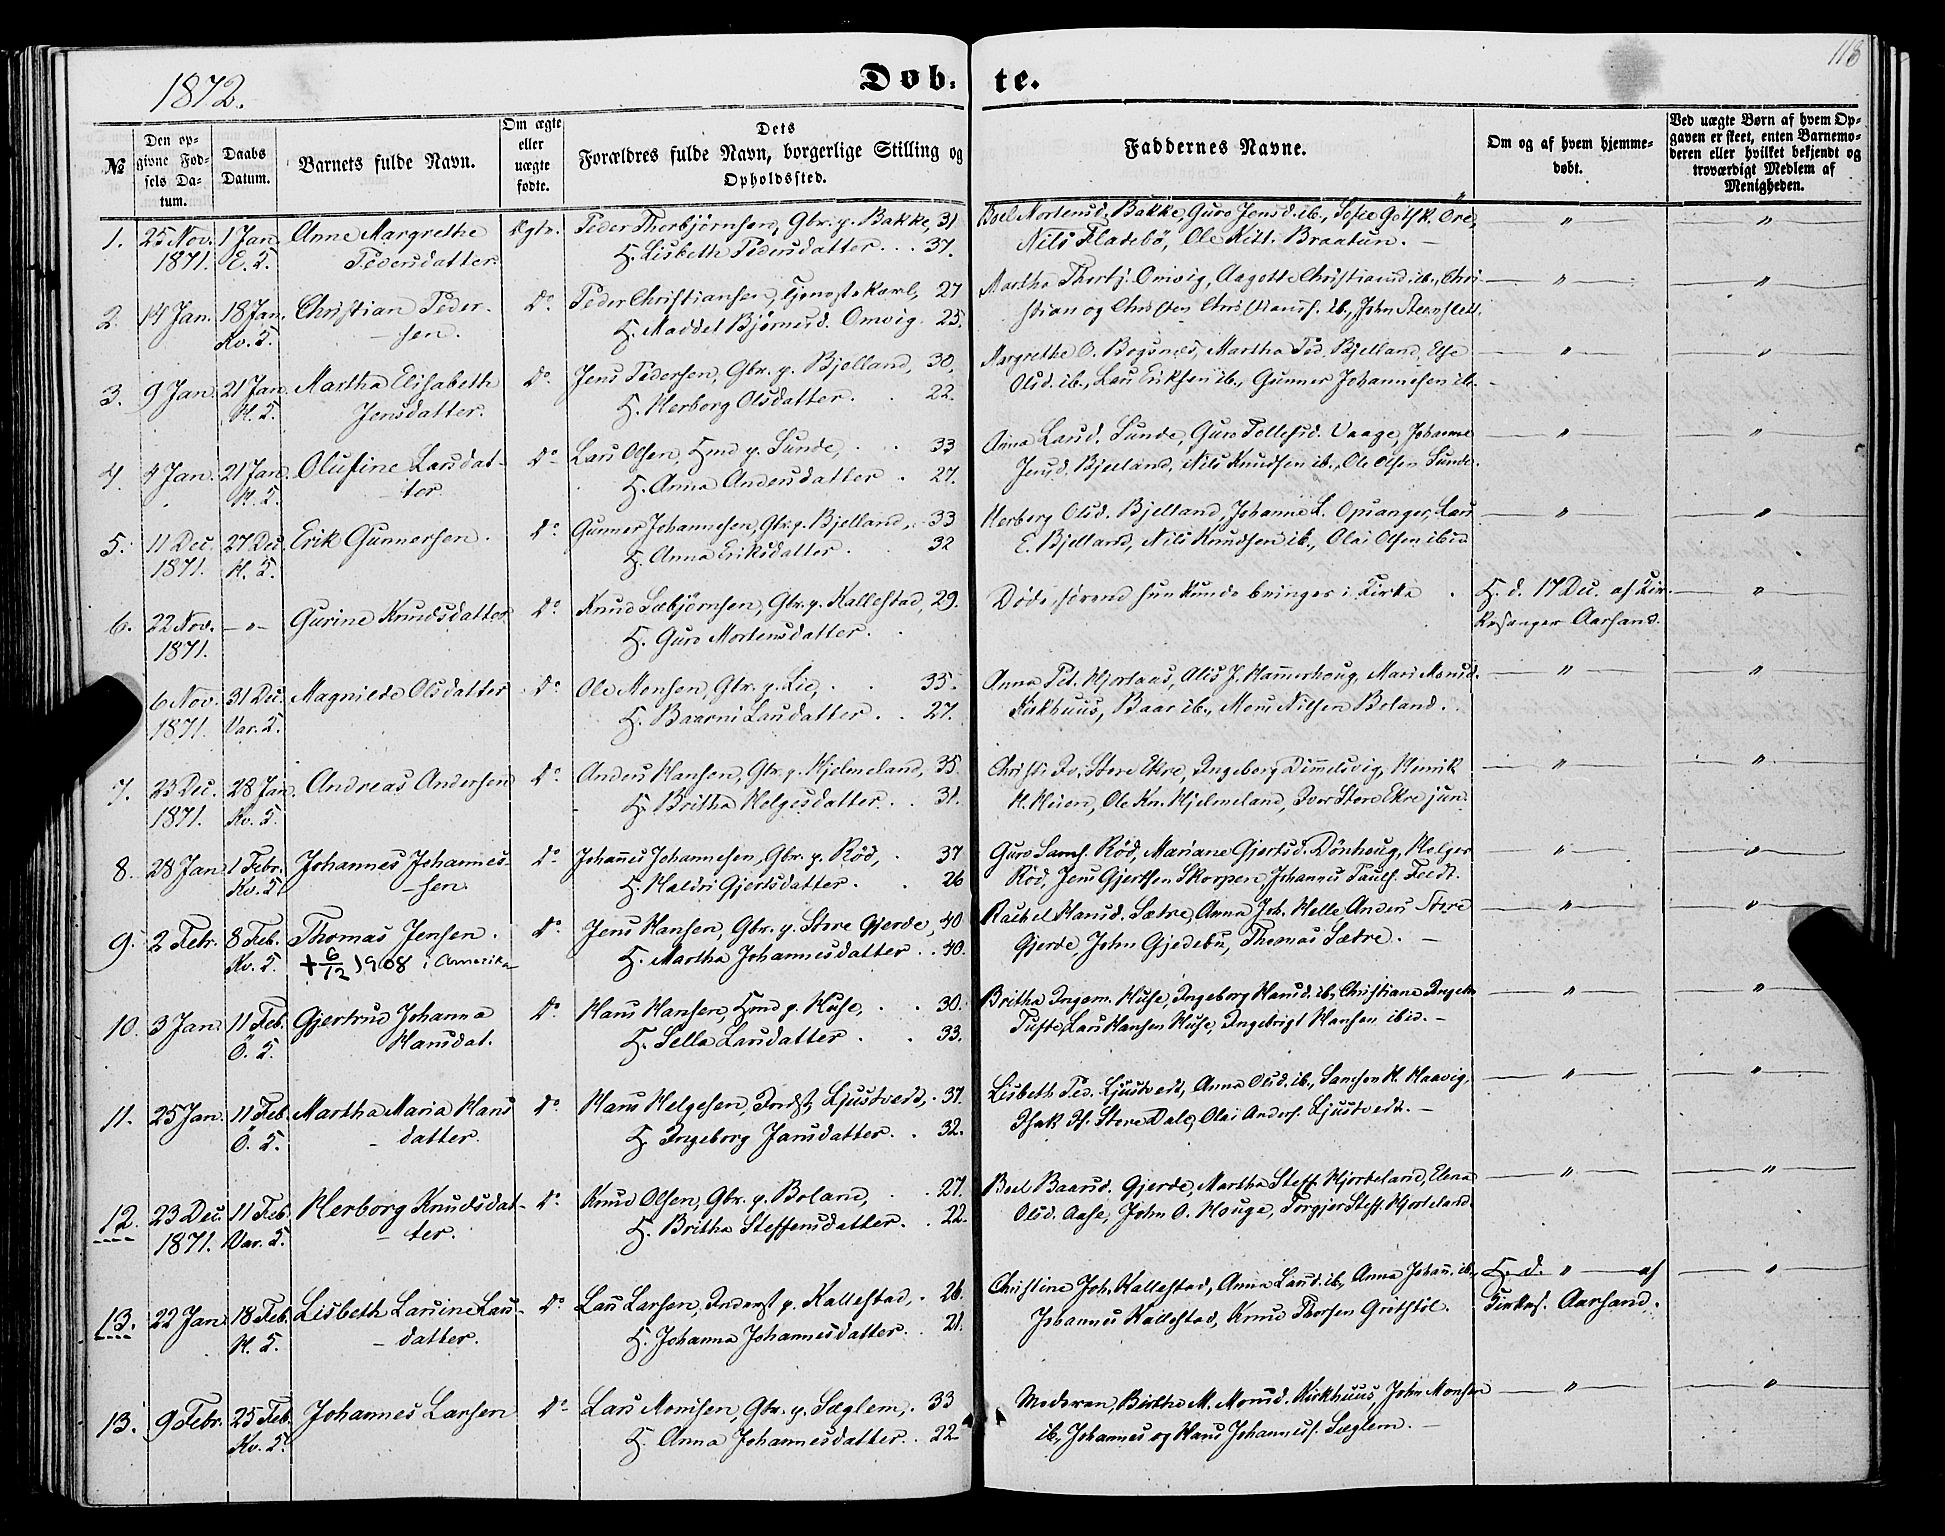 1872.
Døb-
te.
118
№
Den op-
givne Fød-
sels Da-
tum.
Daabs
Datum.
Barnets fulde Navn.
Om ægte
eller
uægte
fødte.
Dets
Forældres fulde Navn, borgerlige Stilling og
Opholdssted.
Faddernes Navne.
Om og af hvem hjemme-
døbt.
Ved uægte Børn af hvem Op-
gaven er skeet, enten Barnemo-
deren eller hvilket bekjendt og
troværdigt Medlem af
Menigheden.
1. 25 Nov. 1 Jan. Anne Margrethe Ægte. Peder Thorbjørnsen, Gbr. p. Bakke, 31 Boel Mortensd. Bakke, Guro Jensd. ib., Sofie Øre, " "
1871. E. T. Pedersdatter. H. Lisbeth Pedersdatter . . . 37. Nils Fladebø, Ole Braatun. —
2. 14 Jan. 18 Jan. Christian Peder- Do. Peder Christiansen, Tjenestekarl, 27 Martha Thorbj. Omvig, Aagotte Christiansd. ib., Chri- " "
Kv. T. — sen. H. Maddel Bjørnesd. Omvig . 25. stian og Christen Christians. ib., John
3. 9 Jan. 21 Jan. Martha Elisabeth Do. Jens Pedersen, Gbr. p. Bjelland, 30, Margrethe O. Bogsnæs, Martha Ped. Bjelland, Else " "
H. T. Jensdatter. H. Herborg Olsdatter . . 22. Olsd. ib., Lars Eriksen ib., Gunner Johannesen ib. -
4. 4 Jan. 21 Jan. Olufine Larsdat- Do. Lars Olsen, Hmd p. Sunde, . . 33 Anna Larsd. Sunde, Guro Tollefsd. Vaage, Johanne " "
H. T. — ter. H. Anna Andersdatter . 27. Jensd. Bjelland, Nils Knudsen ib., Ole Olsen Sunde.
5. 11 Dec. 27 Dec. Erik Gunnersen. Do. Gunner Johannesen, Gbr. p. Bjelland, 33 Herborg Olsd. Bjelland, Johanne L. Opsanger, Lars " "
1871. H. T. H. Anna Eriksdatter . 32 E. Bjelland, Nils Knudsen ib., Olai Olsen ibid
6. 22 Nov. — " — Gurine Knudsdatter Do. Knud Sæbjørnsen, Gbr. p. Kallestad, 29. Døde førend hun kunde bringes i Kirke . H. d. 17 Dec. af Kir- "
1871. H. Guro Mortensdatter . Kesanger Aarsand.
6 Nov. 31 Dec. Magnilde Olsdatter Do. Ole Monsen, Gbr. p. Lie, . . 35. Anna Pet. Hjortaas, Alis J. Hammerhoug, Mari Monsd. " "
1871. Var. T. H. Baarni Larsdatter . . 27. Kirkhuus, Baar ib., Mons Nilsen Boland .
7. 23 Dec. 28 Jan. Andreas Andersen Do. Anders Hansen, Gbr. p. Hjelmeland, 35. Christi Iv. Store Ekre, Ingeborg Dimmelsvig, Henrik " "
1871. Kv. T. H. Britha Helgesdatter . . 31. H. Heien, Ole Kn. Hjelmeland, Iver Store Ekre jun.
8. 28 Jan 1 Febr. Johannes Johannes- Do. Johannes Johannesen, Gbr. p. Rød, . 37 Guro Sams. Rød, Mariane Gjertsd. Dönhaug, Helge " "
Kv. T. — sen. H. Haldri Gjertsdatter . . 26 Rød, Jens Gjertsen Skorpen, Johannes Pauls. Feedt.
9. 2 Febr. 8 Feb. Thomas Jensen . Do. Jens Hansen, Gbr. p. Store Gjerde, 40 Rachel Hansd. Sætre, Anna Joh. Helle, Anders Store " "
Kv. T. † 6/12 1908 i Amerika H. Martha Johannesdatter . . 40. Gjerde, John Gjedebu, Thomas Sætre. —
10. 3 Jan. 11 Feb. Gjertrud Johanna Do. Hans Hansen, Hmd p. Huse, . . 30. Britha Ingem. Huse, Ingeborg Hansd. ib., Christiane " "
Ö. T. Hansdat. H. Sella Larsdatter . . 33. Tufte, Lars Hansen Huse, Ingebrigt Hansen ibid. —
11. 25 Jan. 11 Feb. Martha Maria Hans Do. Hans Helgesen, Indst. Ljustvedt, . 37. Lisbeth Ped. Ljustvedt, Anna Olsd. ib., Samson H. Haavig, " "
Ö. T. - datter. H. Ingeborg Jansdatter . . 32. Isak Is. Store Dale, Olai Anders. Ljustvedt. —
12. 23 Dec. 11 Feb. Herborg Knudsdat- Do. Knud Olsen, Gbr. p. Boland, . . 27. Boel Baarsd. Gjerde, Martha Steff. Hjorteland, Elena " "
1871. Var. T. — ter. H. Britha Steffensdatter . . 22. Olsd. Aase, John O. Hauge, Torgjer Steff. Hjorteland.
13. 22 Jan. 18 Feb. Lisbeth Laurine Lars- Do. Lars Larsen, Inderst p. Kallestad, . 26. Christine Joh. Kallestad, Anna Larsd. ib., Anna Johan. ib., H. d. " — af "
H. T. - datter. H. Johanna Johannesdatter . 21. Johannes Kallestad, Knud Thorsen Aarsand.
13. 9 Febr. 25 Feb. Johannes Larsen Do. Lars Monsen, Gbr. p. Sæglem, . 33 Moderen, Birthe M. Monsd. Kirkhuus, John Monsen " "
Kv. T. H. Anna Johannesdatter . . 22 ib., Johannes og Hans Johanness. Sæglem. —